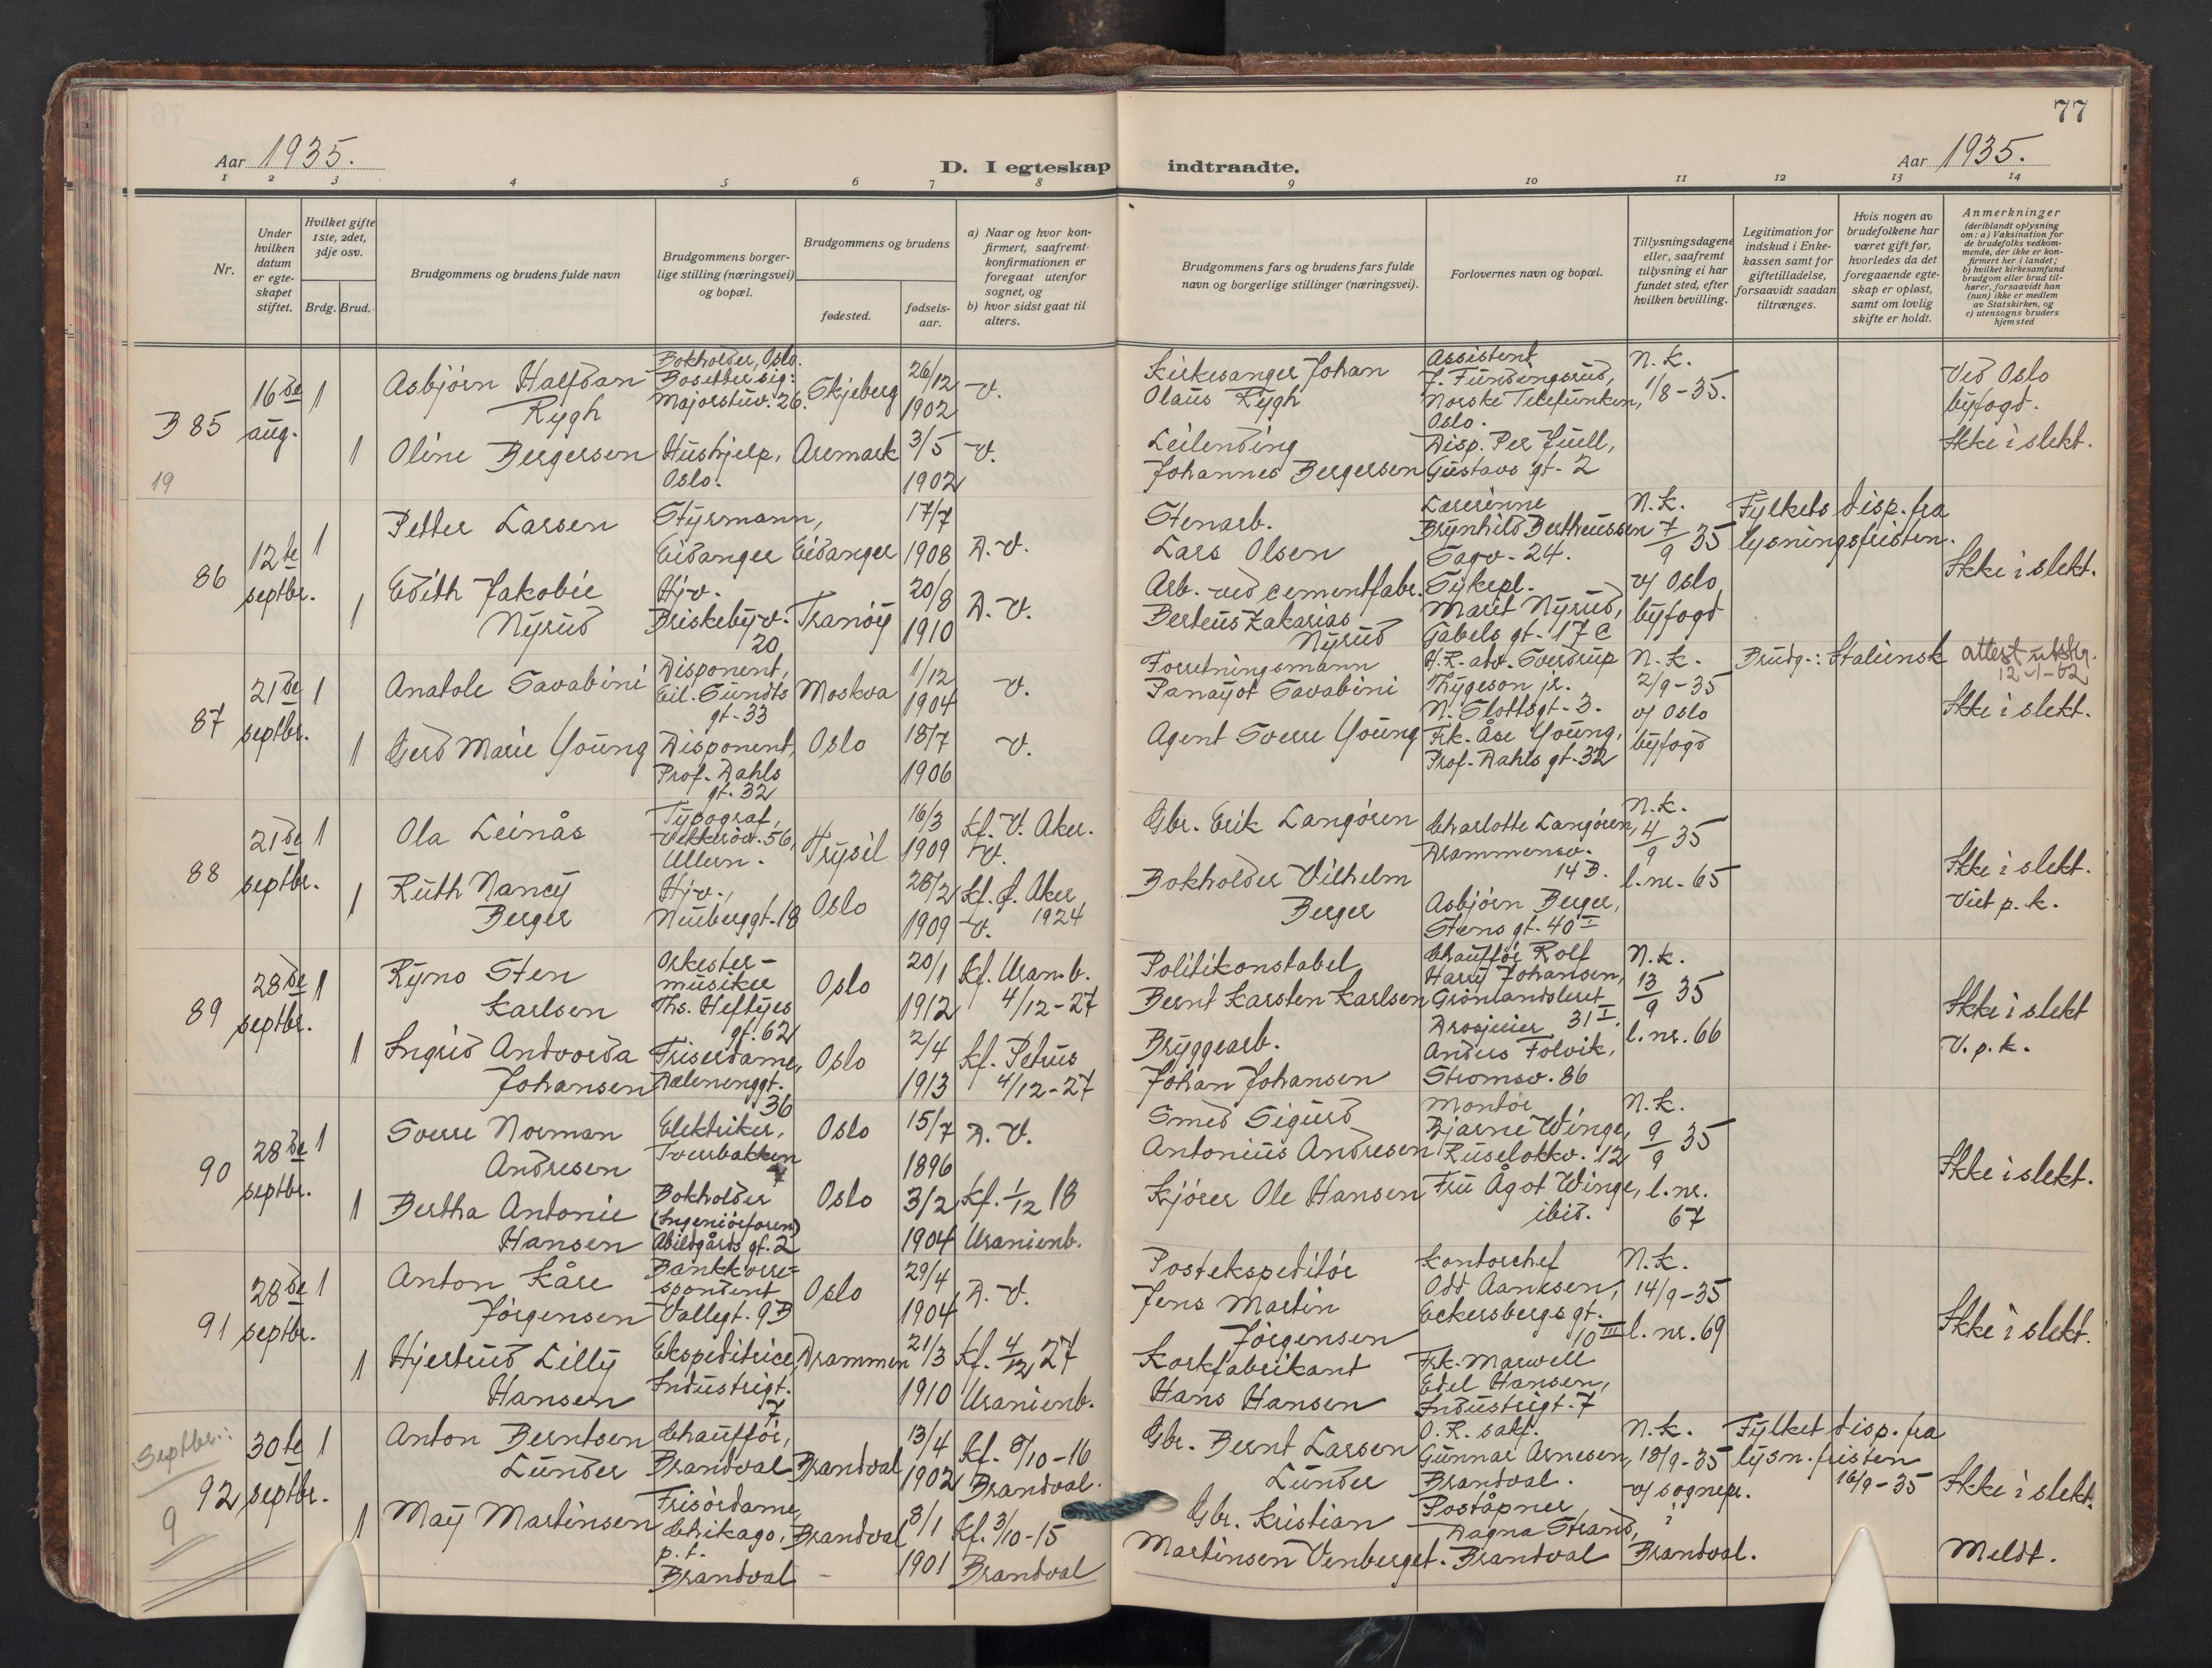 77
Aar 1935.
D. I egteskap indtraadte.
Aar 1935.
1 2 3 4 5 6 7 8 9 10 11 12 13 14
Nr.
Under hvilken datum er egteskapet stiftet.
Hvilket gifte 1ste, 2det, 3dje osv.
Brdg. Brud.
Brudgommens og brudens fulde navn
Brudgommens borgerlige stilling (næringsvei) og bopæl.
Brudgommens og brudens
fødested.
fødselsaar.
a) Naar og hvor konfirmert, saafremt konfirmationen er foregaat utenfor sognet, og
b) hvor sidst gaat til alters.
Brudgommens fars og brudens fars fulde navn og borgerlige stillinger (næringsvei).
Forlovernes navn og bopæl.
Tillysningsdagene eller, saafremt tillysning ei har fundet sted, efter hvilken bevilling.
Legitimation for indskud i Enkekassen samt for giftetilladelse, forsaavidt saadan tiltrænges.
Hvis nogen av brudefolkene har været gift før, hvorledes da det foregaaende egteskap er opløst, samt om lovlig skifte er holdt.
Anmerkninger (deriblandt oplysning om: a) Vaksination for de brudefolks vedkommende, der ikke er konfirmert her i landet; b) hvilket kirkesamfund brudgom eller brud tilhører, forsaavidt han (hun) ikke er medlem av Statskirken, og c) utensogns bruders hjemsted
B 85
19
16de aug.
1
Asbjørn Halfdan Rygh
Bokholder, Oslo.
Bosetter sig:
Majorstuv. 26.
Skjeberg
26/12 1902
V.
Kirkesanger Johan
Olaus Rygh
Assistent
J. Fundingsrud,
Norske Telefunken,
Oslo.
N.k.
1/8-35.
Ved Oslo
byfogd.
Ikke i slekt.
1
Oline Bergersen
Hushjelp,
Oslo.
Aremark
3/5 1902
V.
Leilending
Johannes Bergersen
Disp. Per Juell,
Gustavs gt. 2
86
12te septbr.
1
Petter Larsen
Styrmann,
Eidanger
Eidanger
17/7 1908
D.V.
Stenarb.
Lars Olsen
Lærerinne
Brynhild Bertheussen
Sagv. 24.
N.k.
7/9 35
v/ Oslo
byfogd
Fylkets disp. fra
lysningsfristen.
Ikke i slekt.
1
Edith Jakobie
Nyrud
Hj.v.
Briskebyv.
20
Tranöy
20/8 1910
D.V.
Arb. ved cementfabr.
Berteus Zakarias
Nyrud
Sykepl.
Marit Nyrud,
Gabels gt. 17 C
87
21de septbr.
1
Anatole Savabini
Disponent,
Eil. Sundts
gt. 33
Moskva
1/12 1904
V.
Forretningsmann
Panayot Savabini
H.R. adv. Sverdrup
Thygeson jr.
N. Slottsgt. 3.
N.k.
2/9-35
v/ Oslo
byfogd
Brudg.: Italiensk
attest utstr.
12-1-62
Ikke i slekt.
1
Gerd Marie Young
Disponent,
Prof. Dahls
gt. 32
Oslo
18/7 1906
V.
Agent Sverre Young
Frk. Åse Young,
Prof. Dahls gt. 32
88
21de septbr.
1
Ola Leinås
Typograf,
Vekkeröv. 56,
Ullern.
Trysil
16/3 1909
Kf. V. Aker.
V.
Gbr. Erik Langören
Charlotte Langören,
Drammensv.
14 B.
N.k.
4/9 35
l.nr. 65
Ikke i slekt.
Viet p.k.
1
Ruth Nancy
Berger
Hj.v.,
Neuberggt. 18
Oslo
28/2 1909
Kf. Ø. Aker
1924
V.
Bokholder Vilhelm
Berger
Asbjörn Berger,
Stens gt. 40 I
89
28de septbr.
1
Ryno Sten
Karlsen
Orkester-
musiker
Ths. Heftyes
gt. 62
Oslo
20/1 1912
Kf. Uran.b.
4/12-27
Politikonstabel
Bernt Karsten Karlsen
Chaufför Rolf
Harry Johansen,
Grönlandsleret
31 I.
N.k.
13/9 35
l.nr. 66
Ikke i slekt
V.p.k.
1
Ingrid Andvorda
Johansen
Friserdame,
Dælenenggt.
36
Oslo
2/4 1913
Kf. Petrus
4/12-27
Bryggearb.
Johan Johansen
Drosjeeier
Anders Folvik,
Strömsv. 86
90
28de septbr.
1
Sverre Norman
Andresen
Elektriker,
Tverrbakken
Oslo
15/7 1896
D.V.
Smed Sigurd
Antonius Andresen
Montör
Bjarne Winge,
Ruselökkv. 12
N.k.
9/9 35
l.nr.
67
Ikke i slekt.
1
Bertha Antonie
Hansen
Bokholder
(Ingeniörforen)
Abildgårds gt. 2
Oslo
3/2 1904
Kf. 1/12 18
Uranienb.
Kjörer Ole Hansen
Fru Ågot Winge,
ibid.
91
28de septbr.
1
Anton Kåre
Jörgensen
Bankkorre-
spondent
Vallegt. 9B
Oslo
29/4 1904
D.V.
Postekspeditör
Jens Martin
Jörgensen
Kontorchef
Odd Aanesen,
Eckersbergs gt.
10 III
N.k.
14/9-35
l.nr. 69
Ikke i slekt.
1
Hjertrud Lilly
Hansen
Ekspeditrice,
Industrigt.
7
Drammen
21/3 1910
Kf. 4/12 27
Uranienb.
Korkfabrikant
Hans Hansen
Frk. Marwell
Edel Hansen,
Industrigt. 7
Septbr.:
9
92
30te septbr.
1
Anton Berntsen
Lunder
Chaufför,
Brandval
Brandval
13/4 1902
Kf. 8/10-16
Brandval.
Gbr. Bernt Larsen
Lunder
O.R. sakf.
Gunnar Arnesen,
Brandval.
N.k.
18/9-35
v/ sognepr.
i
Brandval.
Fylket disp. fra
lysn. fristen
16/9-35
Ikke i slekt.
Meldt.
1
May Martinsen
Frisördame,
Chikago,
p.t.
Brandval
Brandval
8/1 1901
Kf. 3/10-15
Brandval
Gbr. Kristian
Martinsen Venberget.
Poståpner
Dagna Strand,
Brandval